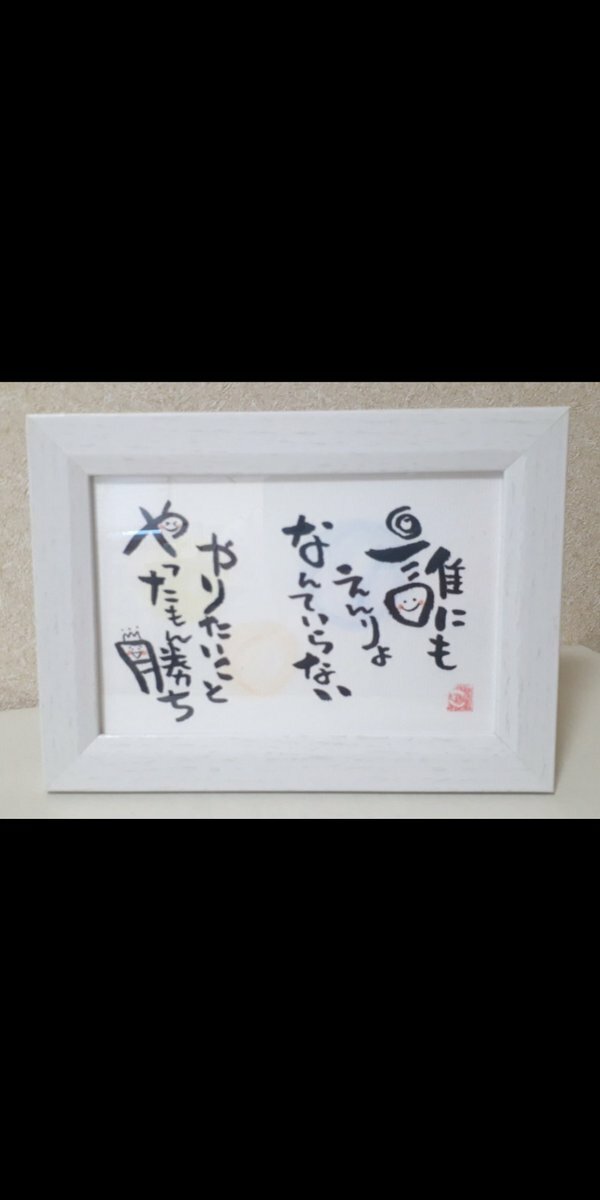 誰にも
えんりょ
なんていらない
やりたいこと
やったもん勝ち